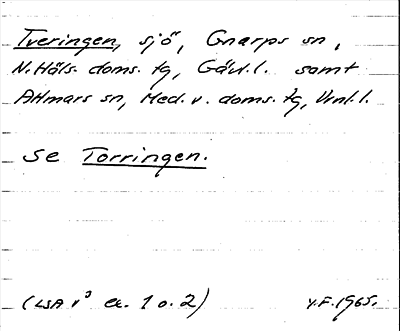 Tveringen, sjö, Gnarps sn,
N. Häls. doms. tg, Gävl. l. samt
Attmars sn, Med. v. doms. tg, Vnl. l.
se Torringen.
(LSA v³ ex. 1 o. 2) Y.F. 1965.